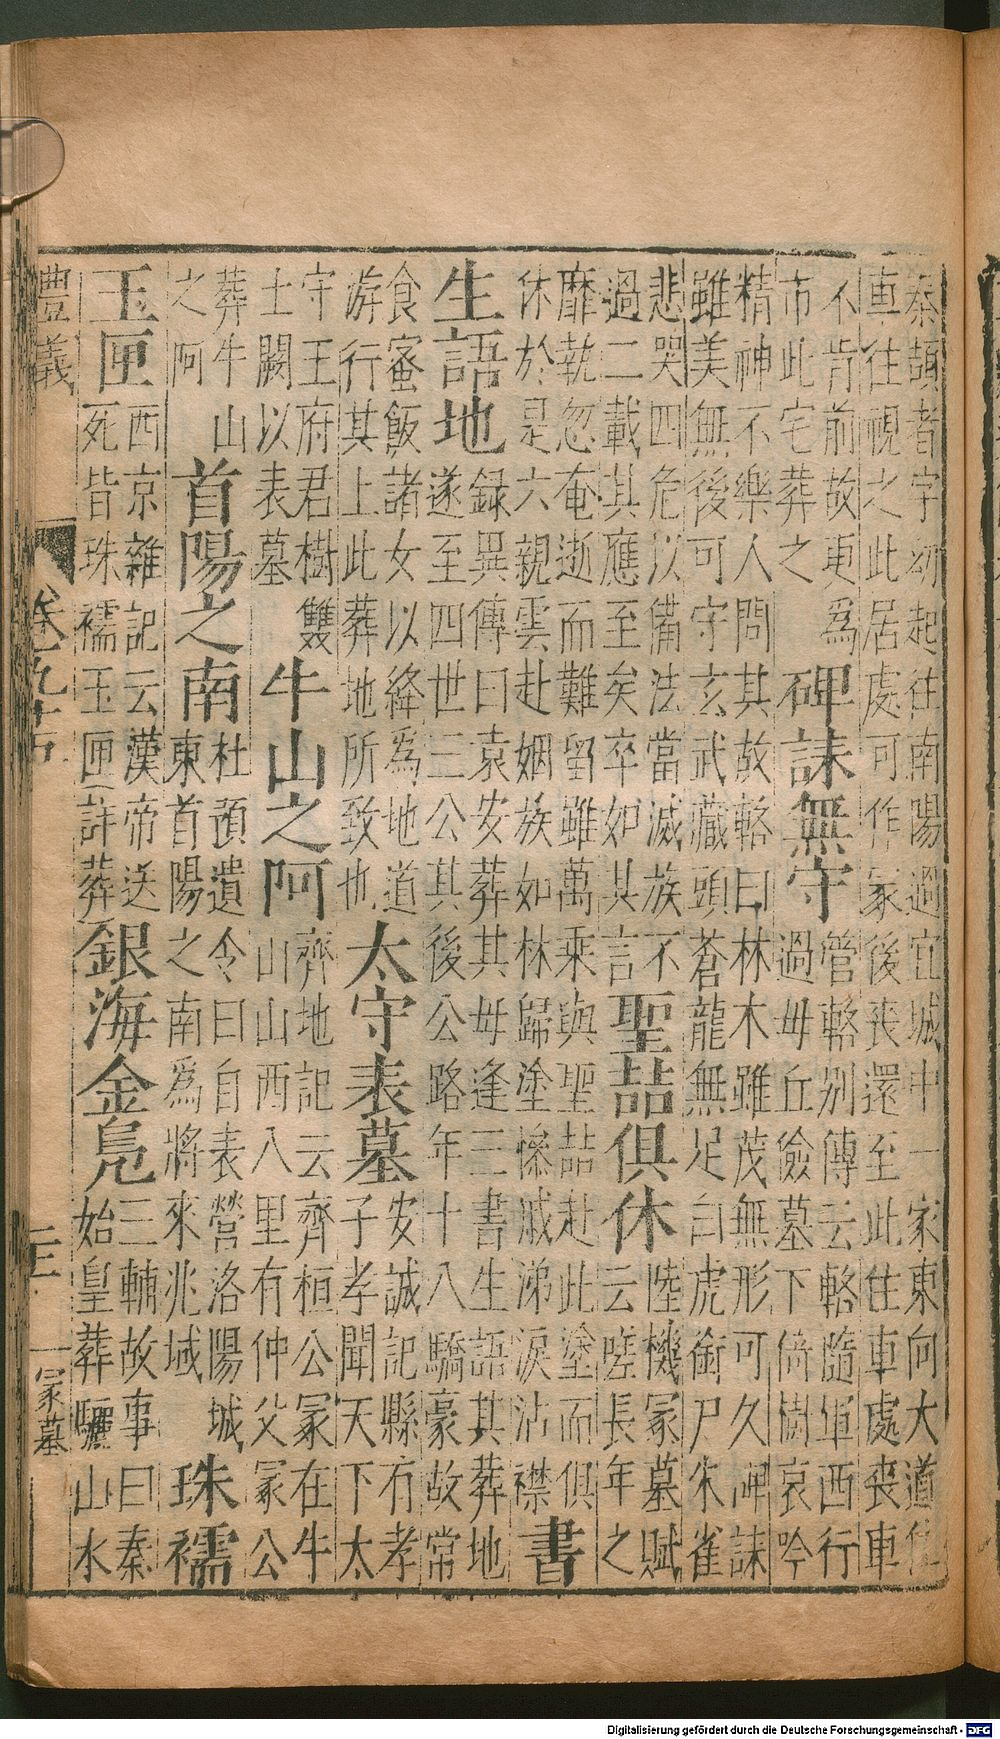 秦頡者字初起往南陽過宜城中一家東向大道住
車往視之此居處可作冢後喪還至此住車處喪車
不肯前故更為
市此宅葬之
碑誄無守
管輅別傳云輅隨軍西行
過毋丘儉墓下倚樹哀吟
精神不樂人問其故輅曰林木雖茂無形可久碑誄
雖美無後可守玄武藏頭蒼龍無足白虎銜尸朱雀
悲哭四危以備法當滅族不
過二載其應至矣卒如其言
聖喆俱休
陸機冢墓賦
云嗟長年之
靡執忽奄逝而難留雖萬乘與聖喆赴此塗而俱
休於是六親雲赴姻族如林歸塗慘戚涕淚沾襟
書
生語地
録異傳曰袁安葬其毋逢三書生語其葬地
遂至四世三公其後公路年十八驕豪故常
食蜜飯諸女以絳為地道
游行其上此葬地所致也
太守表墓
安誠記縣有孝
子孝聞天下太
守王府君樹雙
土闕以表墓
牛山之阿
齊地記云齊桓公冢在牛
山山西八里有仲父冢公
葬牛山
之阿
首陽之南
杜預遺令曰自表營洛陽城
東首陽之南為將來兆域
珠襦
玉匣
西京雜記云漢帝送
死皆珠襦玉匣詳葬
銀海金鳧
三輔故事曰秦
始皇葬驪山水
豊義
卷九十
冢墓
Digitalisierung gefördert durch die Deutsche Forschungsgemeinschaft - DFG